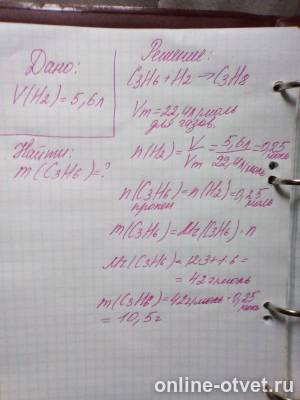 Дано:
V(H2)=5,6л
Найти:
m(C3H6)=?
Решение:
C3H6+H2→C3H8
Vm=22,4л/моль
для газов.
n(H2)=V/Vm=5,6л/22,4л/моль=0,25 моль
n(C3H6)=n(H2)=0,25 моль
пропен
m(C3H6)=Mr(C3H6)·n
Mr(C3H6)=12·3+1·6=
=42г/моль
m(C3H6)=42г/моль·0,25 моль
=10,5г
online-otvet.ru